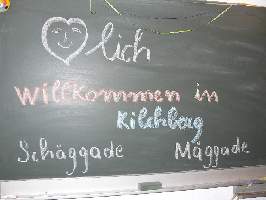 lich
Willkommen in
Kilchberg
Schäggade Mäggade